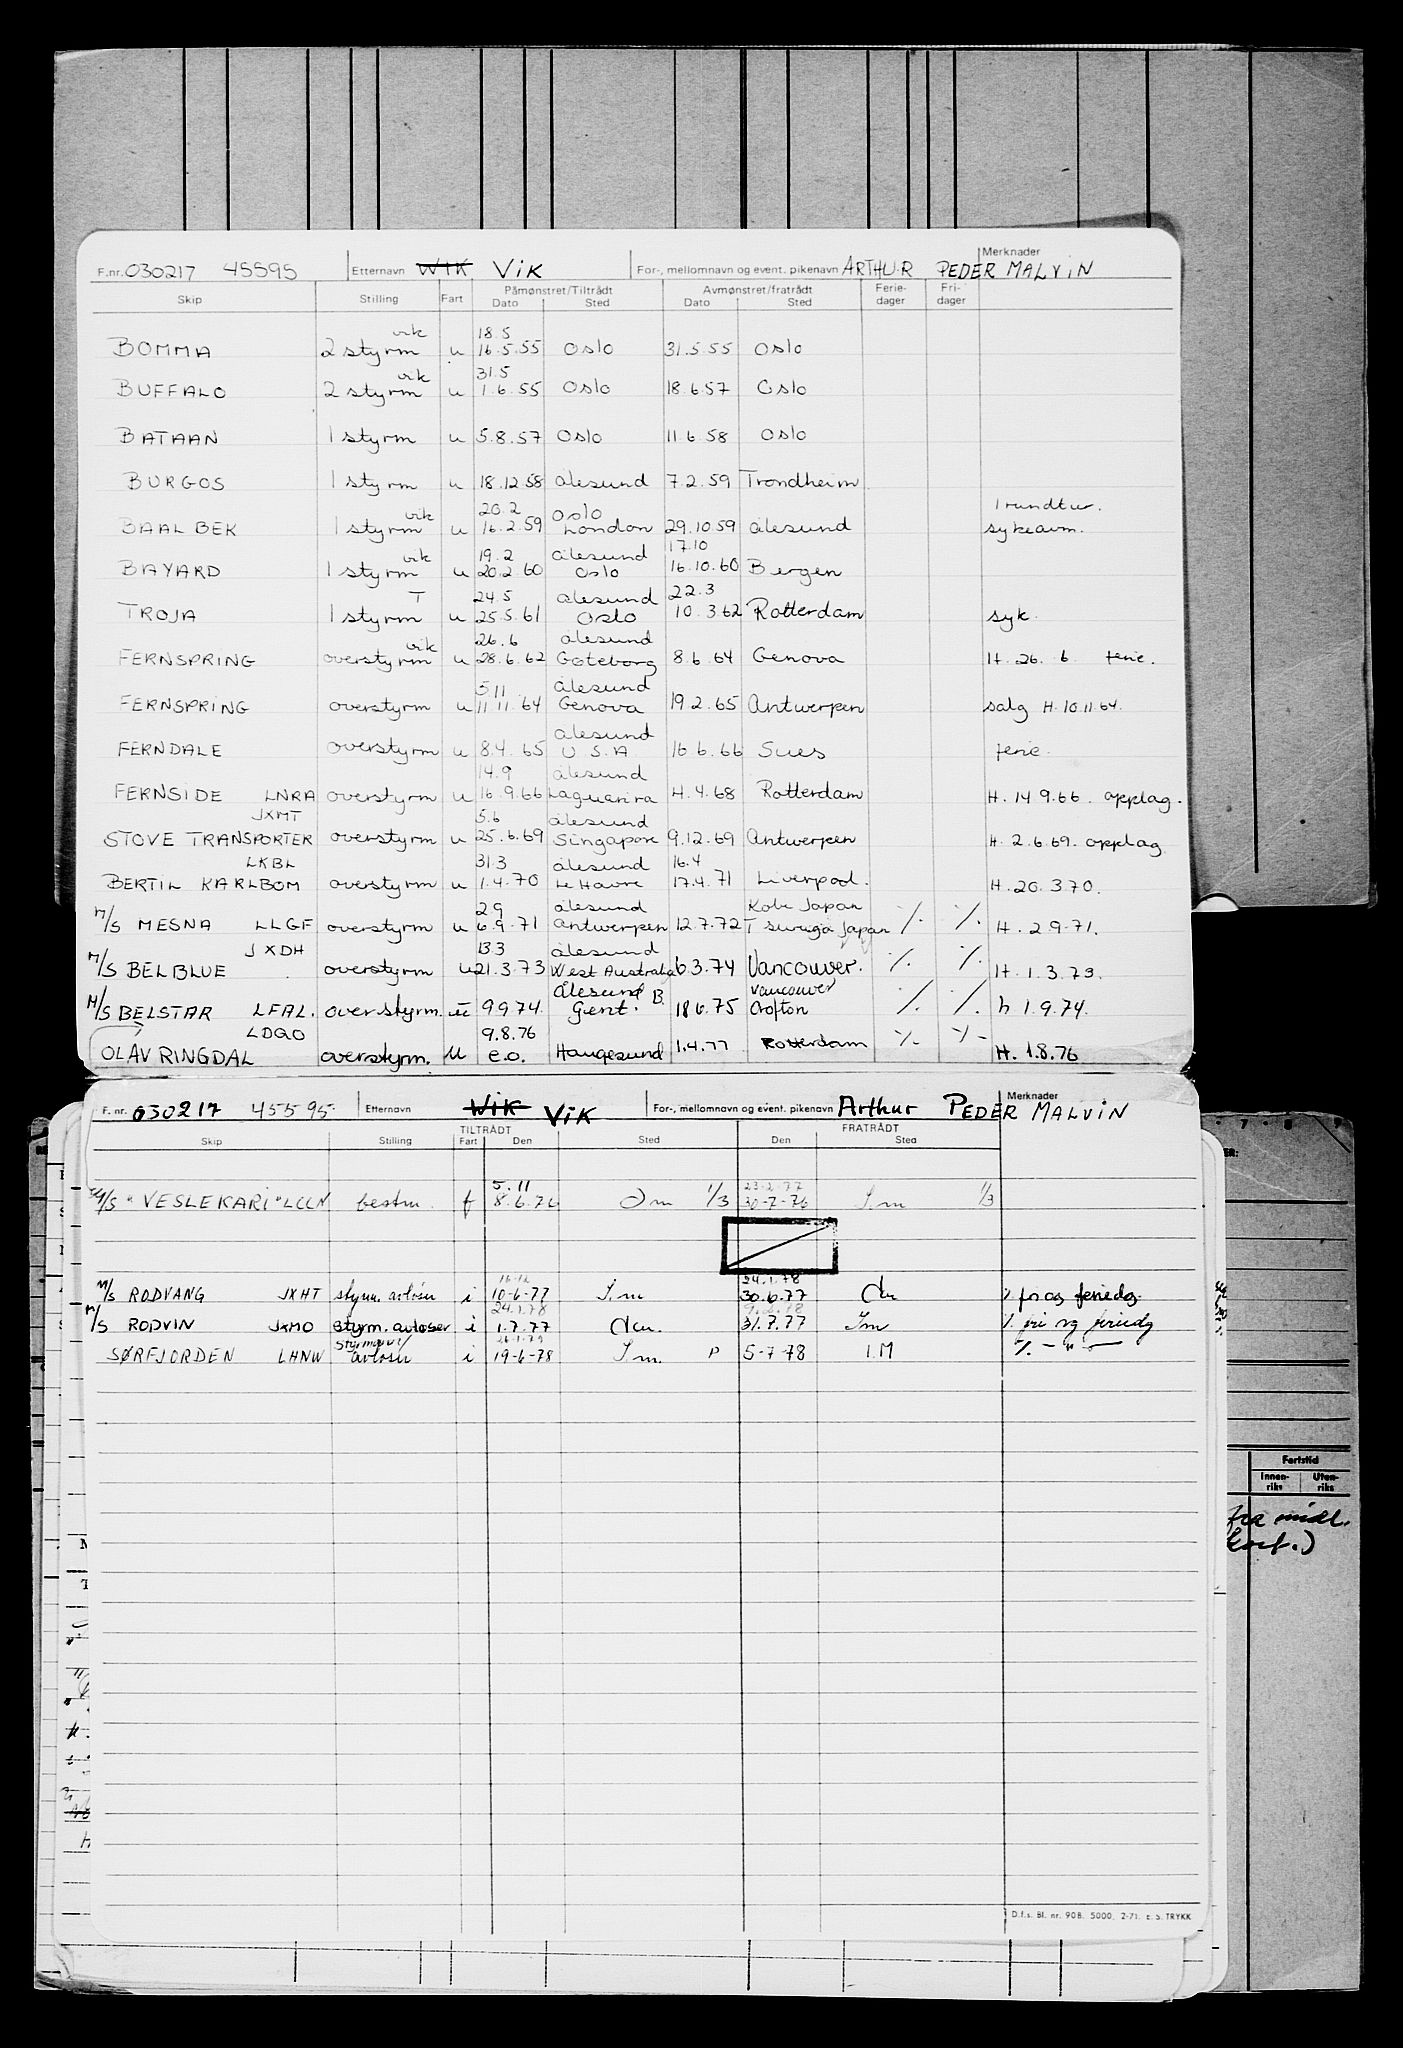 F.nr. 030217 45595 Etternavn WIK VIK For-, mellomnavn og event. pikenavn ARTHUR PEDER MALVIN Merknader
Skip Stilling Fart Påmønstret/Tiltrådt Dato Sted Avmønstret/fratrådt Dato Sted Ferie-dager Fri-dager
vik 18.5
BOMMA 2 styrm u 16.5.55 Oslo 31.5.55 Oslo
vik 31.5
BUFFALO 2 styrm u 1.6.55 Oslo 18.6.57 Oslo
BATAAN 1 styrm u 5.8.57 Oslo 11.6.58 Oslo
BURGOS 1 styrm u 18.12.58 Ålesund 7.2.59 Trondheim
vik 20.2 Oslo 1 rundtur.
BAALBEK 1 styrm u 16.2.59 London 29.10.59 Ålesund sykeavm.
vik 19.2 Ålesund 17.10
BAYARD 1 styrm u 20.2.60 Oslo 16.10.60 Bergen
T 24.5 Ålesund 22.3
TROJA 1 styrm u 25.5.61 Oslo 10.3.62 Rotterdam syk.
vik 26.6 Ålesund
FERNSPRING overstyrm u 28.6.62 Göteborg 8.6.64 Genova H. 26. 6 ferie.
5.11 Ålesund
FERNSPRING overstyrm u 11.11.64 Genova 19.2.65 Antwerpen salg H.10.11.64.
Ålesund
FERNDALE overstyrm u 8.4.65 U.S.A 16.6.66 Sues ferie.
14.9 Ålesund
FERNSIDE LNRA overstyrm u 16.9.66 Laguarira 4.4.68 Rotterdam H. 14 9.66. opplag.
JXMT 5.6 Ålesund
STOVE TRANSPORTER overstyrm u 25.6.69 Singapore 9.12.69 Antwerpen H. 2.6.69. opplag
LKBL 31.3 Ålesund 16.4
BERTIL KARLBOM overstyrm u 1.4.70 Le Havre 17.4.71 Liverpool. H. 20.3.70.
2.9 Ålesund Kobe Japan
M/S MESNA LLGF overstyrm u 6.9.71 Antwerpen 12.7.72 Tsuruga Japan ./. ./. H. 2 9.71.
JXDH 13.3 Ålesund
M/S BELBLUE overstyrm u 21.3.73 West Australia 6.3.74 Vancouver. ./. ./. H. 1.3.73.
Ålesund B. Vancouver
M/S BELSTAR LFAL. overstyrm. u 9.9.74 Gent. 18 6.75 Crofton ./. ./. h 1.9.74.
LDQO 9.8.76
OLAV RINGDAL overstyrm. u e.o. Haugesund 1.4.77 Rotterdam ./. ./. H. 1.8.76
F. nr. 030217 45595 Etternavn WIK VIK For-, mellomnavn og event. pikenavn Arthur PEDER MALVIN Merknader
Skip Stilling TILTRÅDT Fart Den Sted FRATRÅDT Den Sted
5.11 23.2.77
M/S "VESLEKARI" LCLN bestm. f 8.6.76 Dm 1/3 30-7-76 I.m 1/3
16-12 24.1.78
M/S RODVANG JXHT styrm. avløser i 10-6-77 I.m 30.6.77 du ./. fri og feriedg.
24.1.78
M/S RODVIN JXMO styrm. avløser i 1.7.77 du. 31.7.77 Im ./. fri og feriedg
26.1.79
SØRFJORDEN LHNW avløser i 19-6-78 I.m. P 5-7-78 I.M ./. — " —
D.f.s. Bl. nr. 90B. 5000, 2-71. E.S. TRYKK
Fartstid
Innen-riks Uten-riks
fra midl.
kort.)